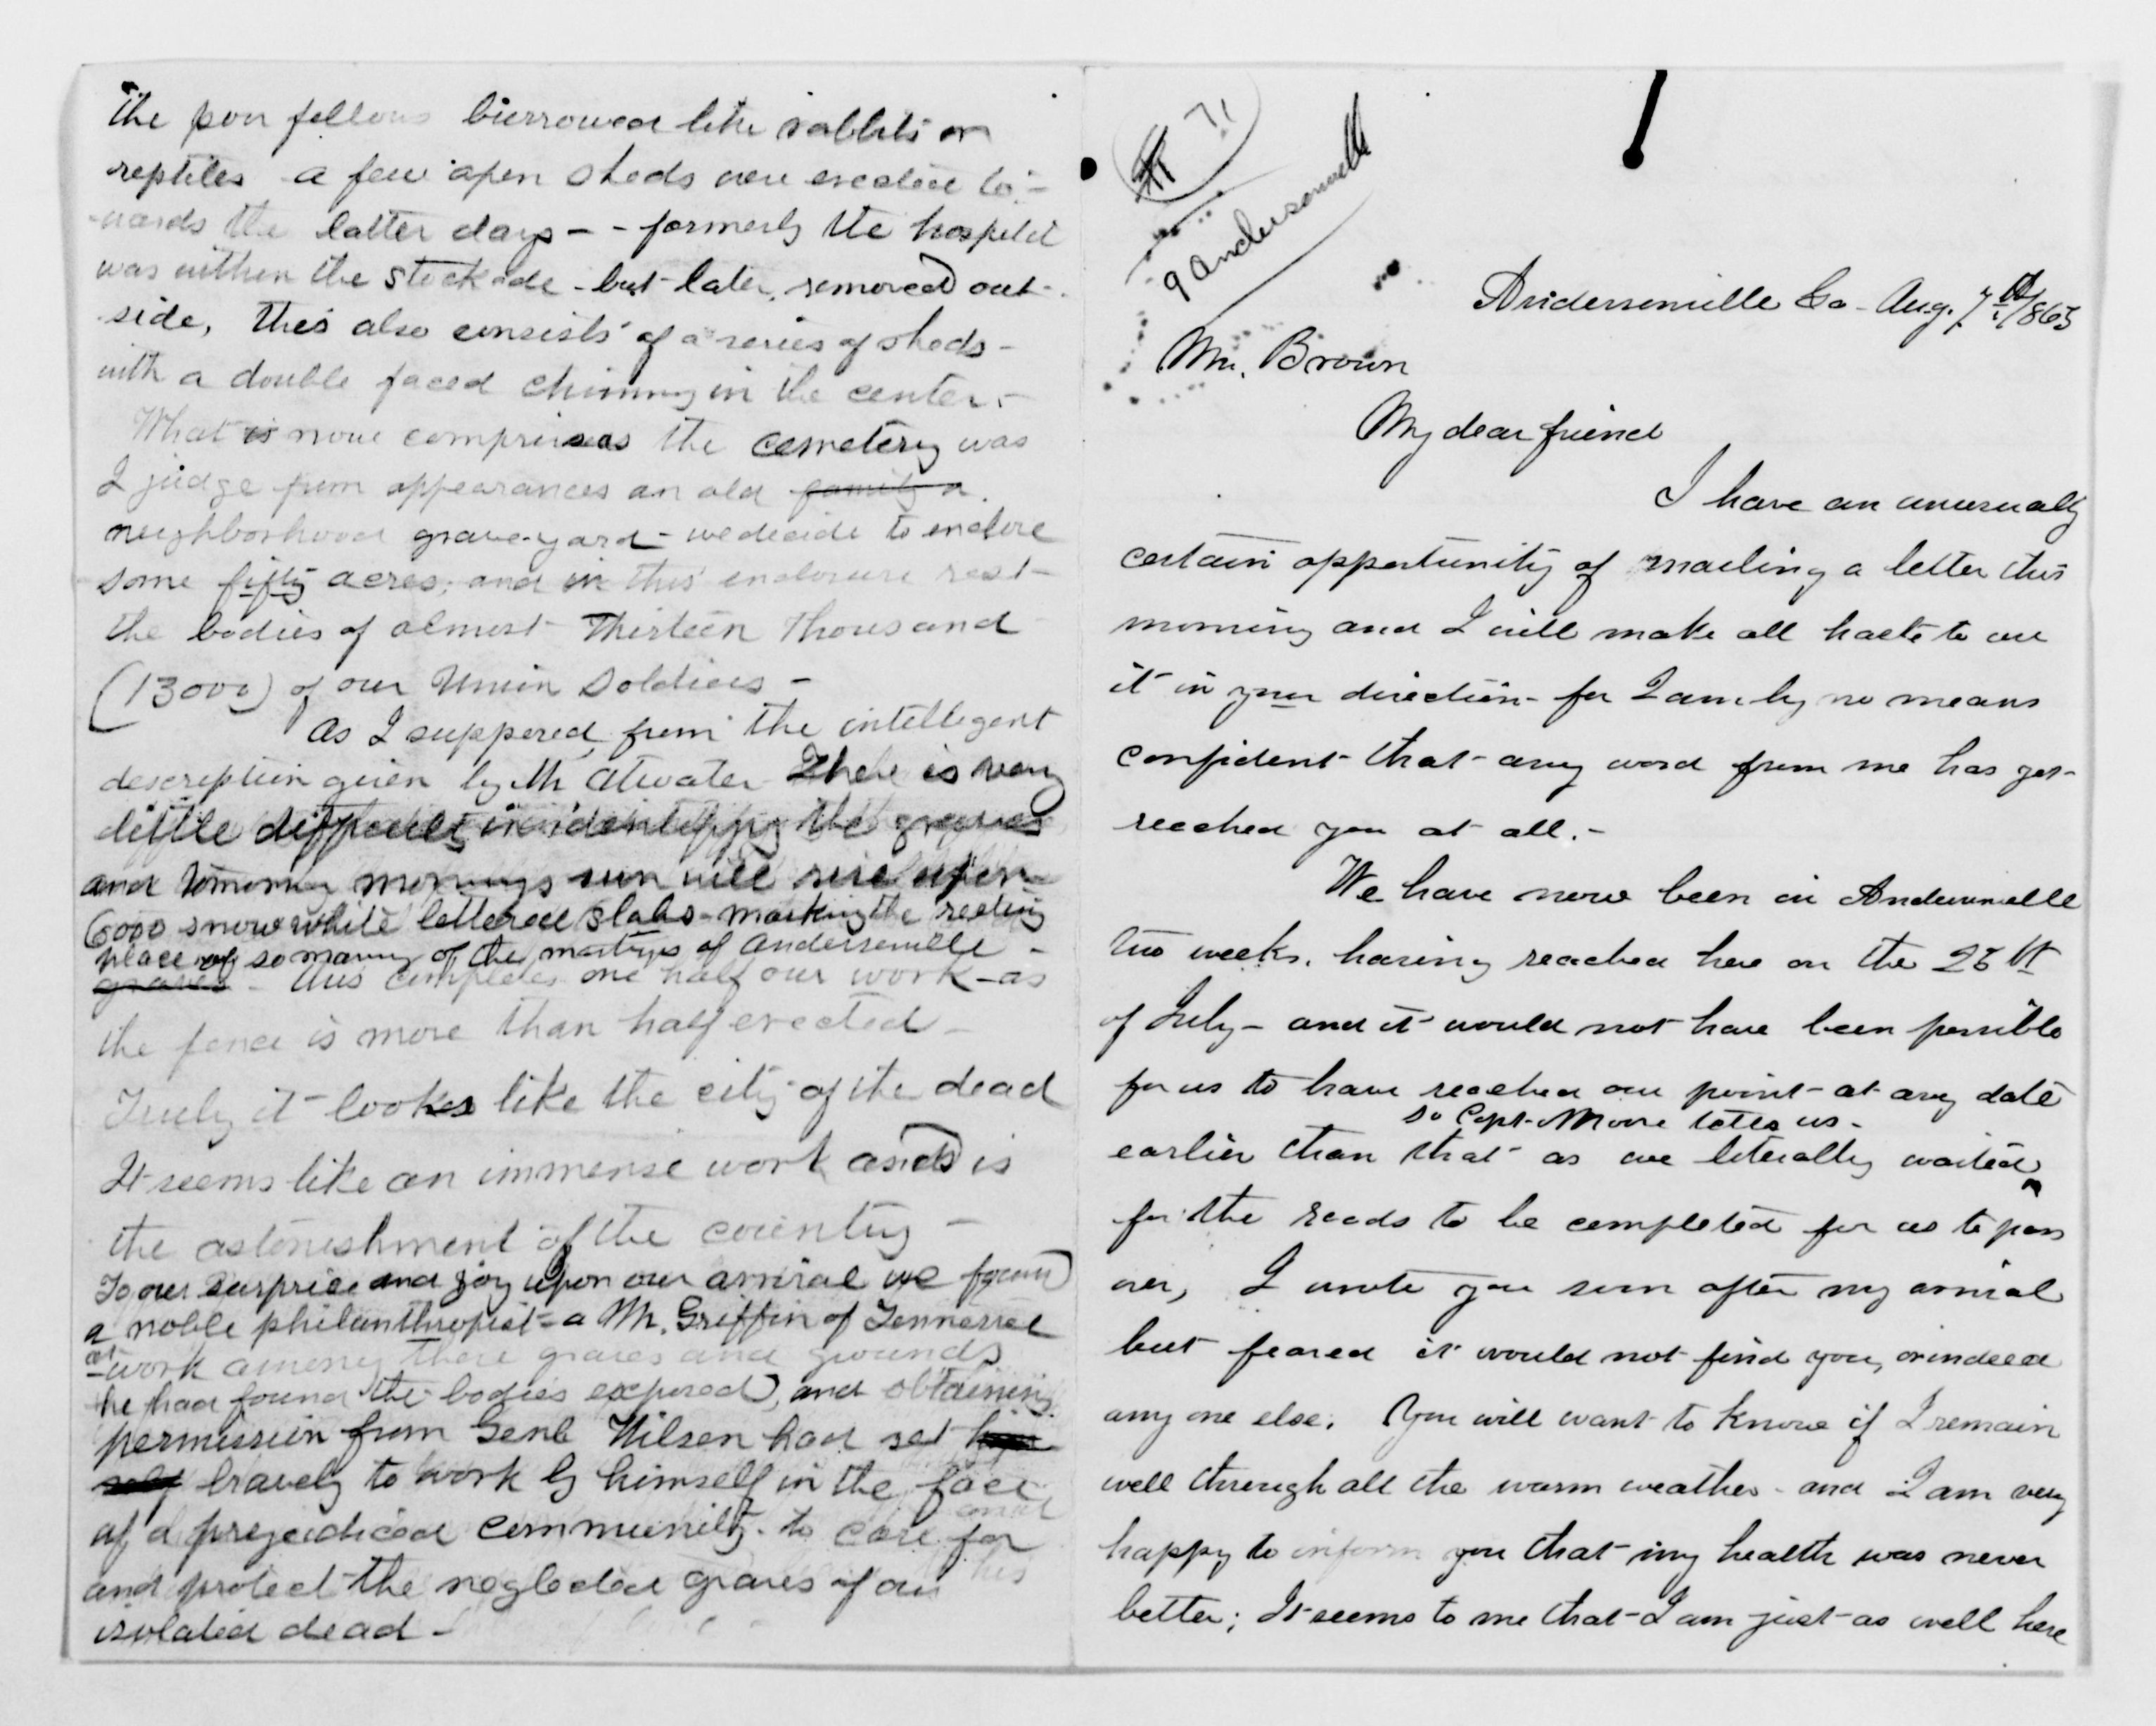 The poor fellows burrowed like rabbits or
reptiles a few open sheds were erected to-
wards the latter days - - formerly the hospital
was within the stockade - but later, removed out-
side, this also consists of a series of sheds -
with a double faced chimny in the center. -
What is now comprises the cemetery was
I judge from appearances an old family a
neighborhood grave-yard - we decide to enclose
some fifty acres; and in this enclosure rest
the bodies of almost Thirteen Thousand
(13000) of our Union Soldiers -
As I supposed from the intelligent
description given by Mr Atwater There is very
little difficulty in identifying the graves
and tomorrow mornings sun will rise upon
6000 snow white lettered slabs - marking the resting
place of so many of the martyrs of Andersonville -
graves - this completes one half our work - as
the fence is more than half erected -
Truly it looks like the city of the dead
It seems like an immense work and is
the astonishment of the country -
To our surprise and joy upon our arrival we found
a noble philanthropist - a Mr. Griffin of Tennessee
at work among these graves and grounds
he had found the bodies exposed, and obtaining
permission from Genl Wilson had set him
self bravely to work by himself in the face
of a prejudiced community. to care for
and protect the neglected graves of our
isolated dead -
71
9 Andersonville
Andersonville Ga - Aug. 7th /865
Mr. Brown
My dear friend
I have an unusually
certain opportunity of mailing a letter this
morning and I will make all haste to use
it in your direction - for I am by no means
confident that any word from me has yet
reached you at all. -
We have now been in Andersonville
two weeks. having reached here on the 25th
of July - and it would not have been possible
for us to have reached our point at any date
so Capt. Moore tells us -
earlier than that as we literally waited
for the roads to be completed for us to pass
over, I wrote you soon after my arrival
but feared it would not find you, or indeed
any one else. You will want to know if I remain
well through all the warm weather - and I am very
happy to inform you that my health was never
better; It seems to me that I am just as well here